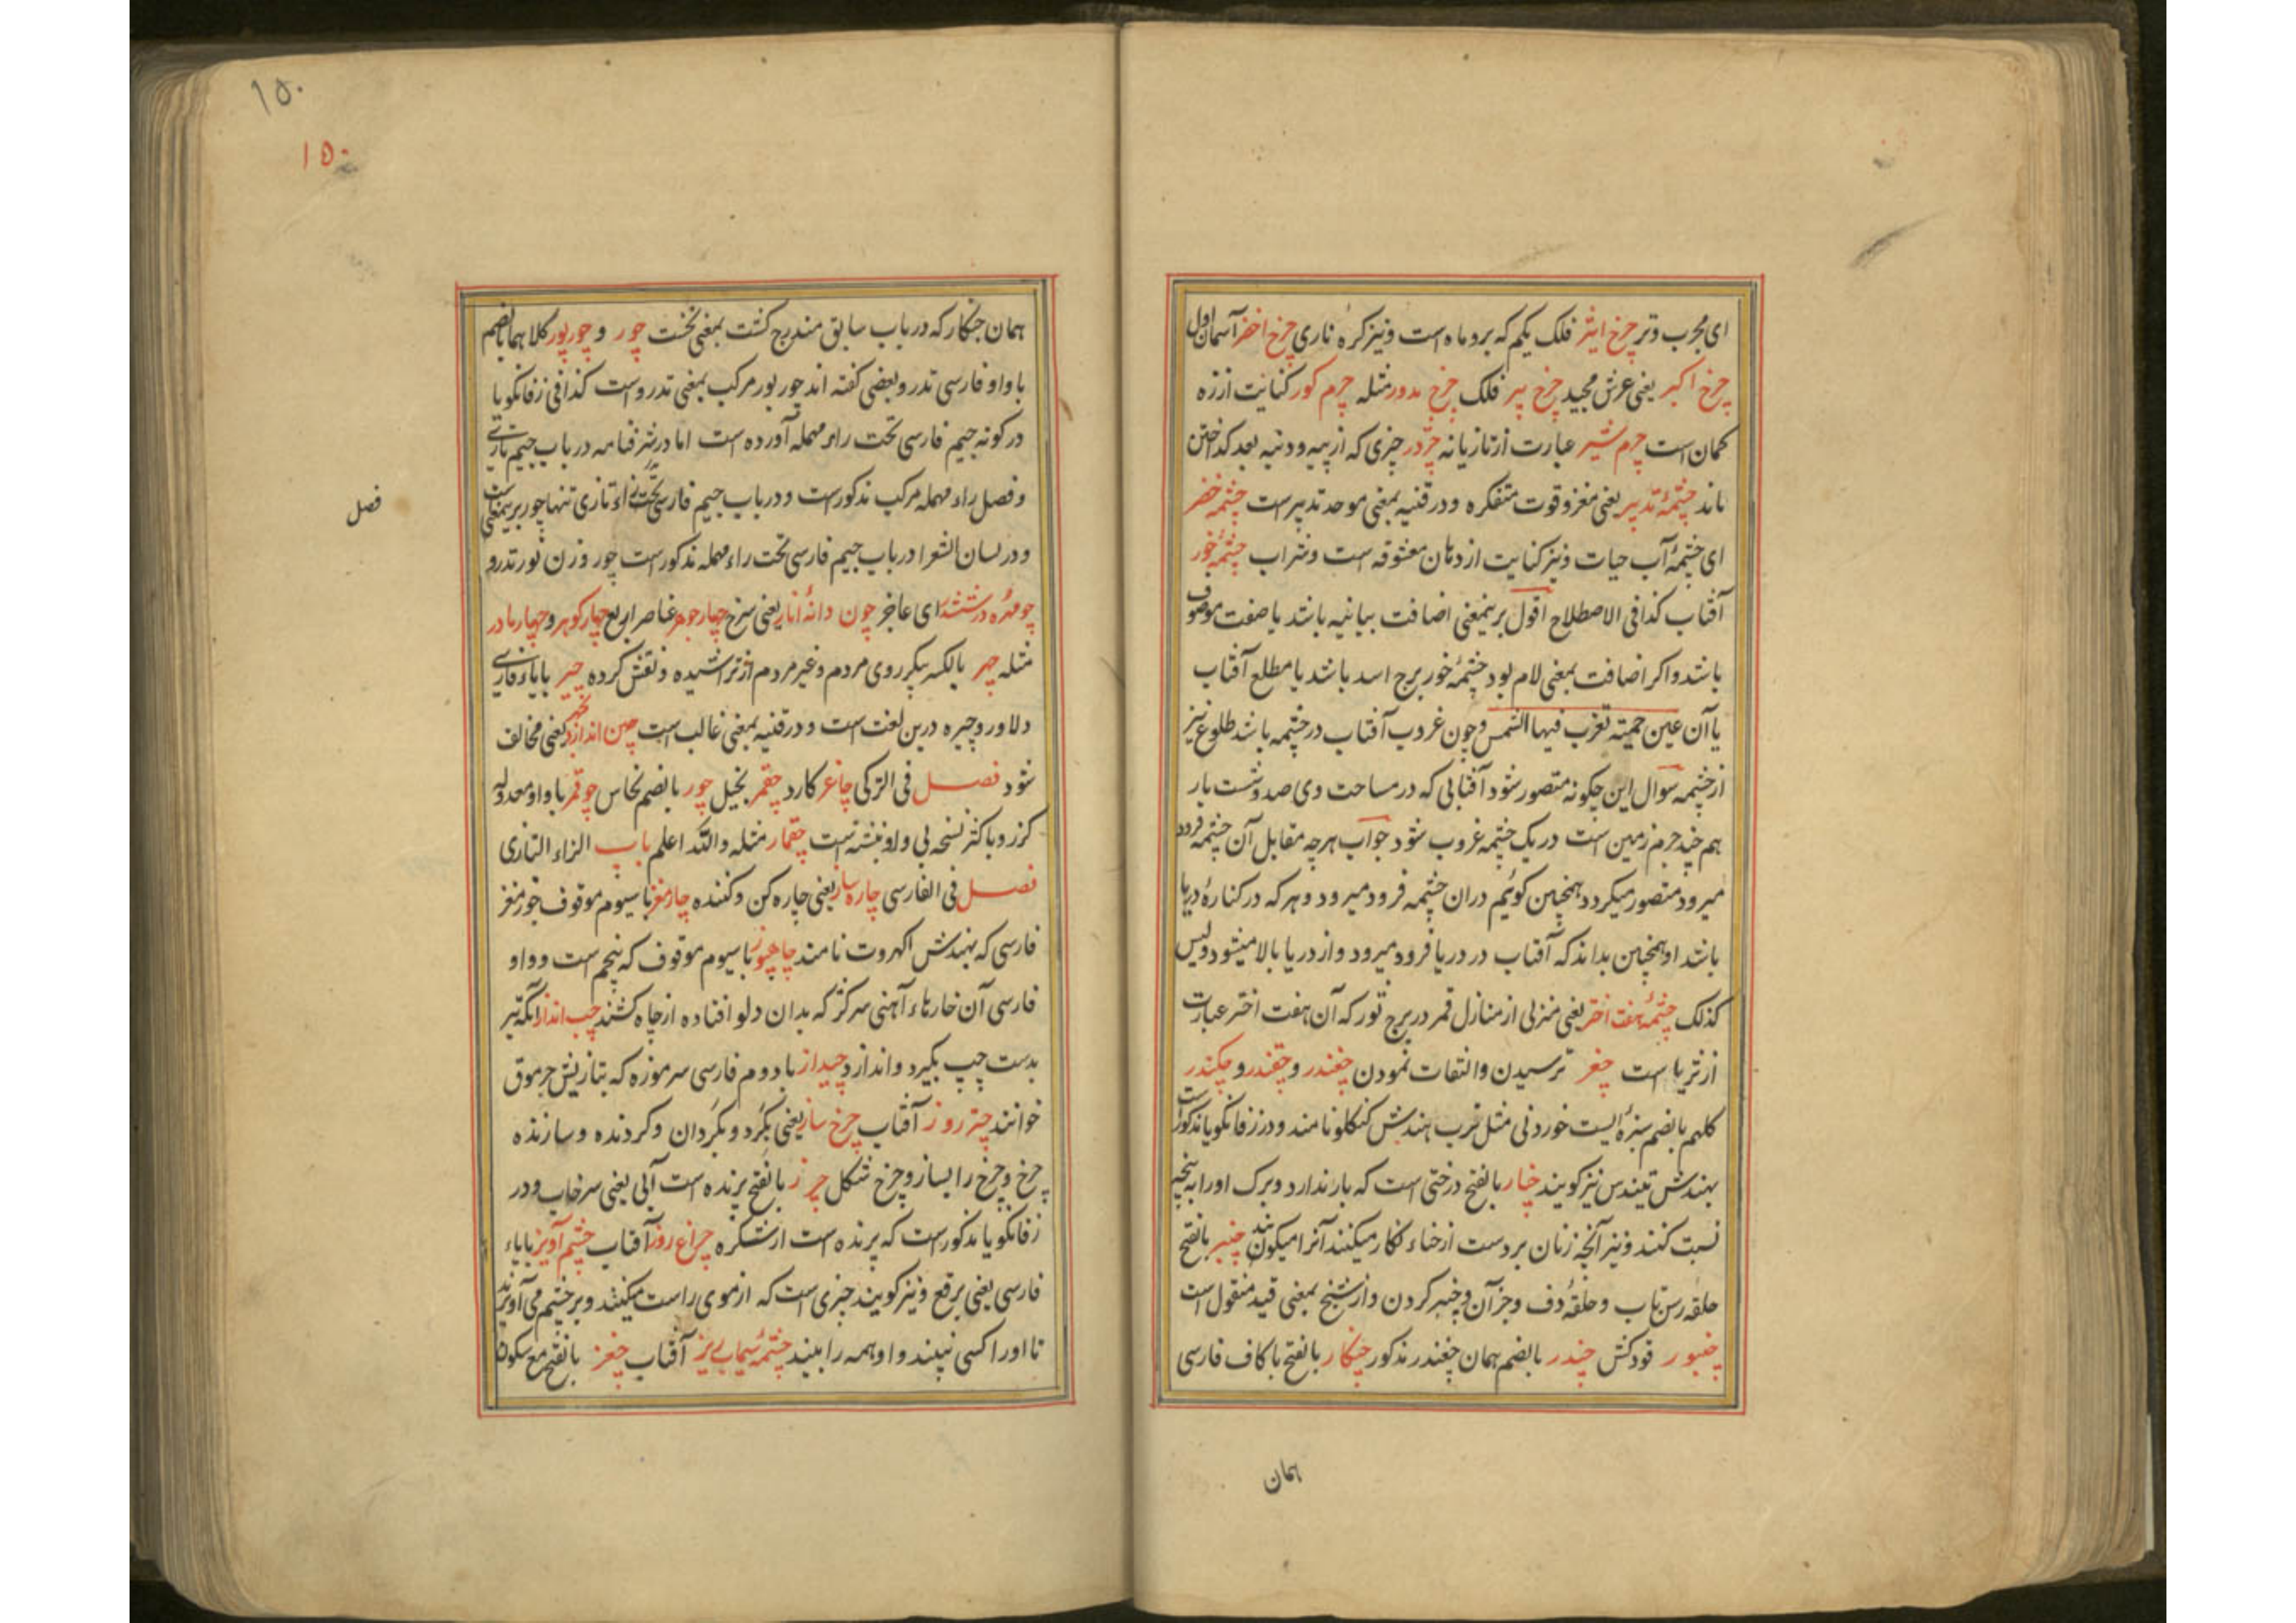 ای مجرب وتر چرخ اثیر فلک یکم که بروماه است ونیز کره ناری چرخ اخضر آسمان اول
چرخ اکبر یعنی عرش مجید چرخ پیر فلک چرخ مدور مثله چرم کور کنایت از زه
کمان است چرم شیر عبارت از تازیانه چزدر چیزی که از پیه و دنبه بعد کداختن
ماند چشمهٔ تدبیر یعنی مغز وقوت متفکره ودر قنیه بمعنی موحد تدبیر است چشمهٔ خضر
ای چشمهٔ آب حیات ونیز کنایت از دهان معشوقه است وشراب چشمهٔ خور
آفتاب کذا فی الاصطلاح اقول برینمعنی اضافت بیانیه باشد یا صفت موصوف
باشد واکر اضافت بمعنی لام بود چشمهٔ خور برج اسد باشد یا مطلع آفتاب
یا آن عین حمیته تغرب فیها الشمس وچون غروب آفتاب در چشمه باشد طلوع نیز
از چشمه سوال این چکونه متصور شود آفتابی که در مساحت وی صد وشست بار
هم چند جرم زمین است در یک چشمه غروب شود جواب هرچه مقابل آن چشمه فرود
میرود متصور میکردد همچنین کوئیم دران چشمه فرود میرود وهر که در کنارهٔ دریا
باشد او همچنین بداند که آفتاب در دریا فرود میرود واز دریا بالا میشود ولیس
کذلک چشمهٔ هفت اختر یعنی منزلی از منازل قمر در برج ثور که آن هفت اختر عبارت
از ثریا است چغر ترسیدن والتفات نمودن چغندر وچقندر وچکندر
کلهم بالضم سبزهٔ ایست خوردنی مثل ترب هندش کنکلو نامند ودر زفانکویا مذکور است
بهندش تیندس نیز کویند چنار بالفتح درختی است که بار ندارد وبرک او را به پنجه
نسبت کنند ونیز آنچه زنان بر دست از حناء نکار میکنند آنرا میکویند چنبر بالفتح
حلقه رسن تاب وحلقهٔ دف وجز آن وچنبر کردن واز شیخ بمعنی قید منقول است
چنبور قودکش چندر بالضم همان چغندر مذکور چنکار بالفتح با کاف فارسی
همان
۱۵۰
۱۵۰
همان جنکار که در باب سابق مندرج کشت بمعنی نخست چور وچورپور کلاهما بالضم
با واو فارسی تدرو وبعضی کفته اند چور پور مرکب بمعنی تدرو است کذا فی زفانکویا
در کونه جیم فارسی تحت راء مهمله آورده است اما در شرفنامه در باب جیم تازی
وفصل راء مهمله مرکب مذکور است ودر باب جیم فارسی تحت راء تازی تنها چور برینمعنی است
فصل
ودر لسان الشعرا در باب جیم فارسی تحت راء مهمله مذکور است چور وزن نور تدرو
چو مهره در ششدر ای عاجز چون دانهٔ انار یعنی سرخ چهار جوهر عناصر اربع چهار کوهر وچهار مادر
مثله چهر بالکسر پیکر روی مردم وغیر مردم از تراشیده ونقش کرده چیر با یاء فارسی
دلاور وچیره درین لغت است ودر قنیه بمعنی غالب است چین اندازد یعنی مخالف
شود فصل فی الترکی چاغر کارد چقمر بخیل چور بالضم نخاس چوقمر با واو معدوله
کرز وباکثر نسخه بی واو نبشته است چقمار مثله والله اعلم باب الزاء التازی
فصل فی الفارسی چاره ساز یعنی چاره کن وکننده چار مغز با سیوم موقوف جوز مغز
فارسی که بهندش اکهروت نامند چاهیوز با سیوم موقوف که پنجم است وواو
فارسی آن خارهاء آهنی سرکژ که بدان دلو افتاده از چاه کشند چپ انداز آنکه تیر
بدست چپ بکیرد واندازد چپداز با دوم فارسی سرموزه که بتازیش جرموق
خوانند چتر روز آفتاب چرخ ساز یعنی بکرد وبکردان وکردنده وسازنده
چرخ وچرخ را بساز وچرخ شکل چرز بالفتح پرنده است آبی یعنی سرخاب ودر
زفانکویا مذکور است که پرنده است از شکره چراغ روز آفتاب چشم آویز با یاء
فارسی یعنی برقع ونیز کویند چیزی است که از موی راست میکنند وبر چشم می آویزند
تا او را کسی نبیند واو همه را بیند چشمهٔ سیماب ریز آفتاب چغز بالفتح مع سکون